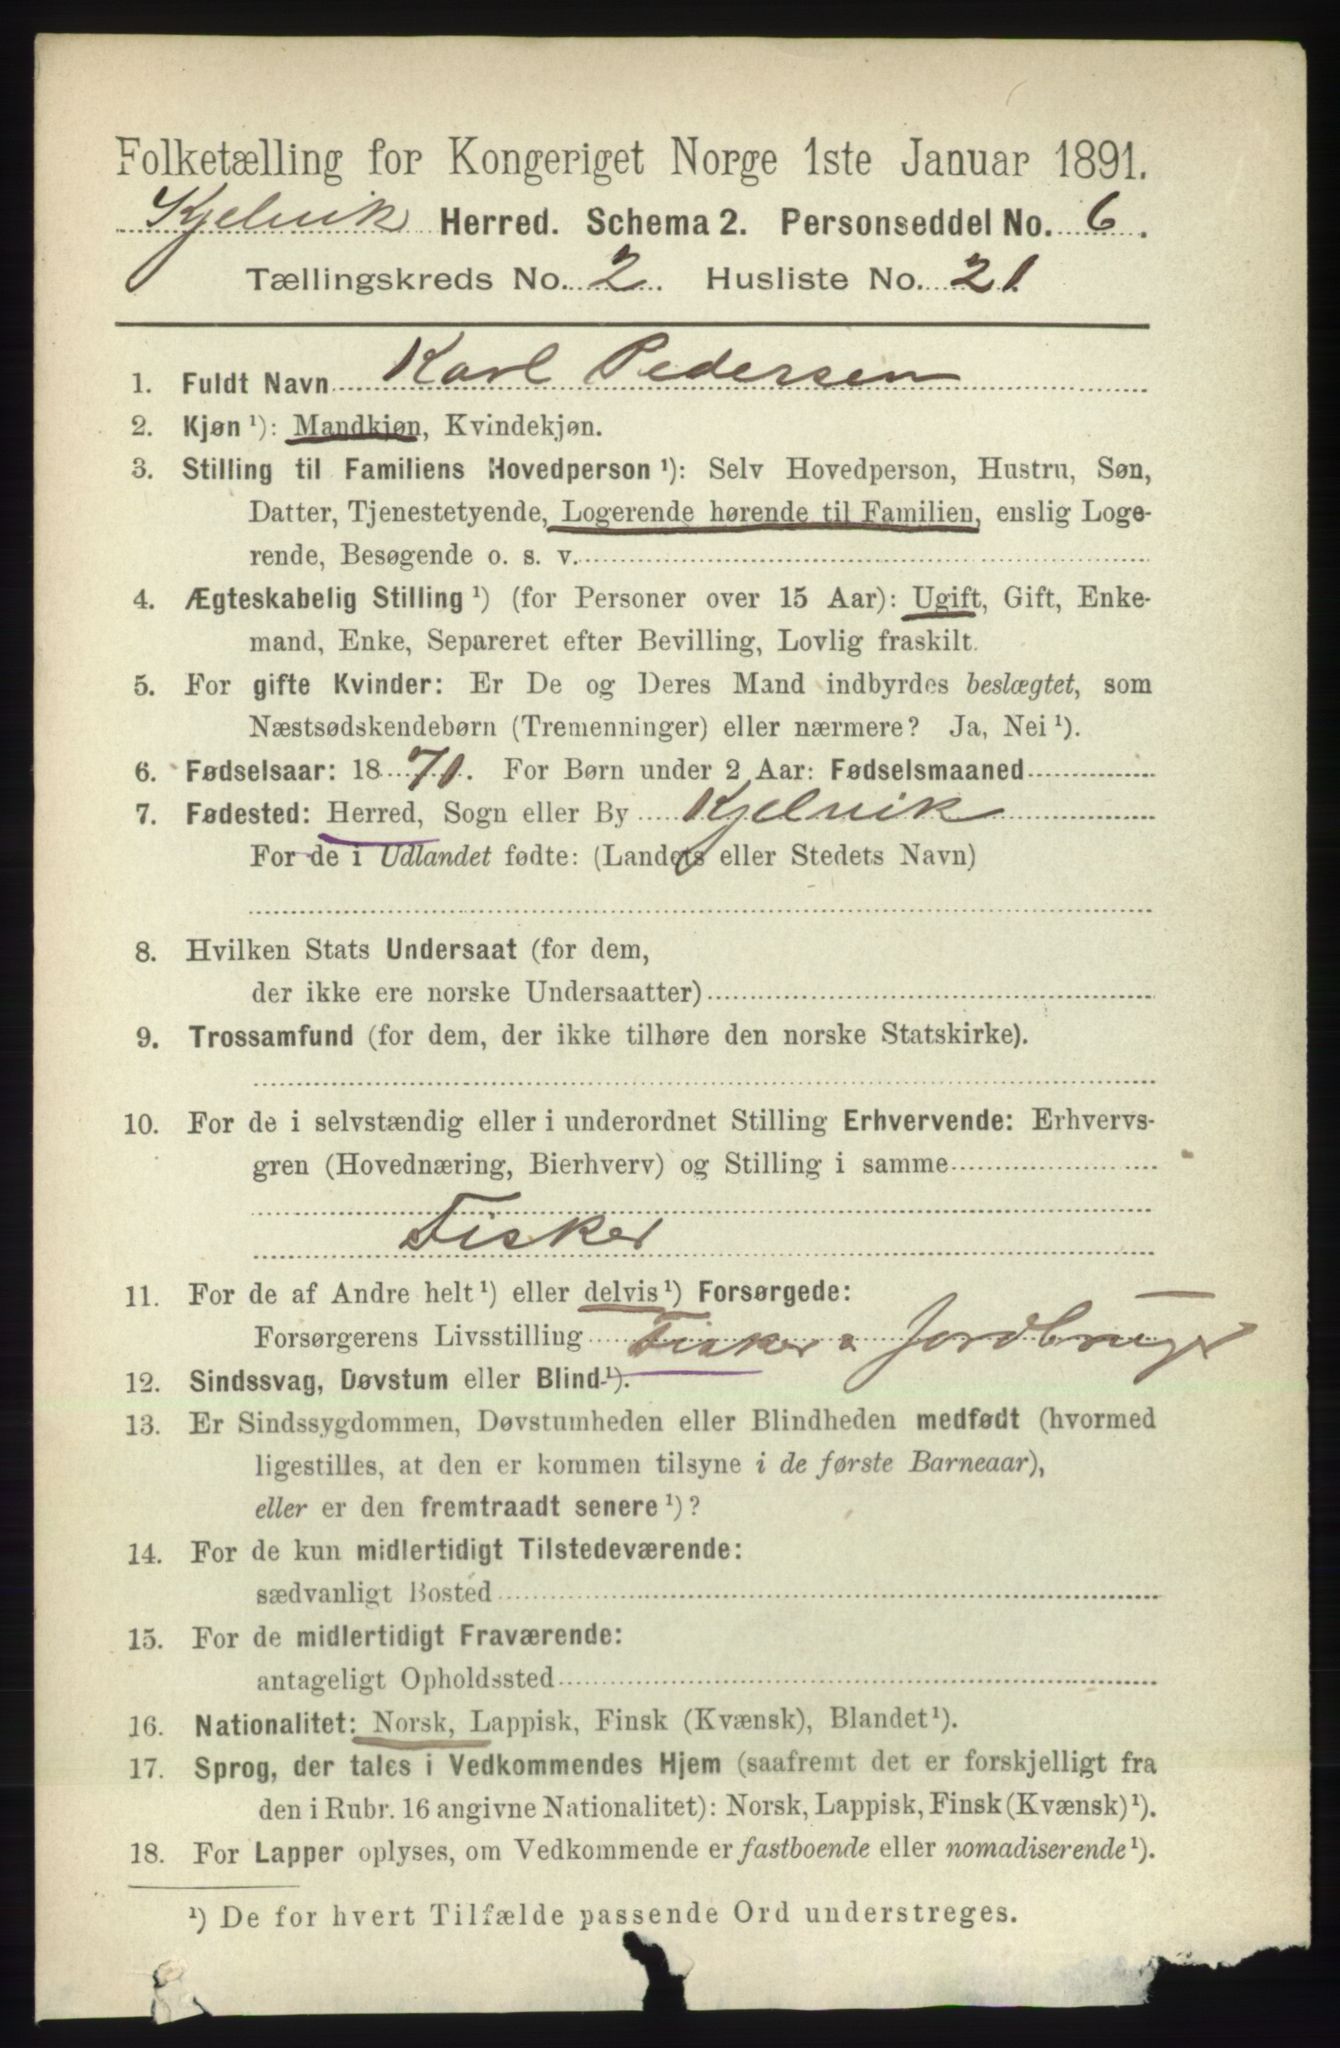 Folketælling for Kongeriget Norge 1ste Januar 1891.
Kjelvik Herred. Schema 2. Personseddel No. 6.
Tællingskreds No. 2. Husliste No. 21
1. Fuldt Navn Karl Pedersen
2. Kjøn ¹): Mandkjøn, Kvindekjøn.
3. Stilling til Familiens Hovedperson ¹): Selv Hovedperson, Hustru, Søn,
Datter, Tjenestetyende, Logerende hørende til Familien, enslig Loge-
rende, Besøgende o. s. v.
4. Ægteskabelig Stilling ¹) (for Personer over 15 Aar): Ugift, Gift, Enke-
mand, Enke, Separeret efter Bevilling, Lovlig fraskilt.
5. For gifte Kvinder: Er De og Deres Mand indbyrdes beslægtet, som
Næstsødskendebørn (Tremenninger) eller nærmere? Ja, Nei ¹).
6. Fødselsaar: 1871. For Børn under 2 Aar: Fødselsmaaned
7. Fødested: Herred, Sogn eller By Kjelvik
For de i Udlandet fødte: (Landets eller Stedets Navn)
8. Hvilken Stats Undersaat (for dem,
der ikke ere norske Undersaatter)
9. Trossamfund (for dem, der ikke tilhøre den norske Statskirke).
10. For de i selvstændig eller i underordnet Stilling Erhvervende: Erhvervs-
gren (Hovednæring, Bierhverv) og Stilling i samme
Fisker
11. For de af Andre helt ¹) eller delvis ¹) Forsørgede:
Forsørgerens Livsstilling Fisker & Jordbruger
12. Sindssvag, Døvstum eller Blind ¹).
13. Er Sindssygdommen, Døvstumheden eller Blindheden medfødt (hvormed
ligestilles, at den er kommen tilsyne i de første Barneaar),
eller er den fremtraadt senere ¹)?
14. For de kun midlertidigt Tilstedeværende:
sædvanligt Bosted
15. For de midlertidigt Fraværende:
antageligt Opholdssted
16. Nationalitet: Norsk, Lappisk, Finsk (Kvænsk), Blandet ¹).
17. Sprog, der tales i Vedkommendes Hjem (saafremt det er forskjelligt fra
den i Rubr. 16 angivne Nationalitet): Norsk, Lappisk, Finsk (Kvænsk) ¹).
18. For Lapper oplyses, om Vedkommende er fastboende eller nomadiserende ¹).
¹) De for hvert Tilfælde passende Ord understreges.